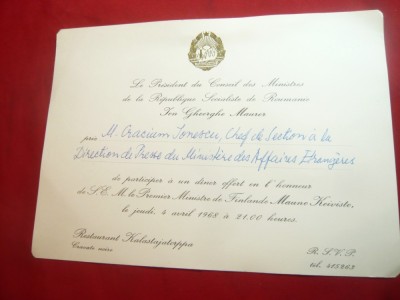 Le Président du Conseil des Ministres
de la République Socialiste de Roumanie
Ion Gheorghe Maurer
prie M. Craciun Ionescu, Chef de Section à la
Direction de Presse du Ministère des Affaires Etrangères
de participer à un dîner offert en l'honneur
de S.E. M. le Premier Ministre de Finlande Mauno Koivisto,
le jeudi, 4 avril 1968 à 21.00 heures.
Restaurant Kalastajatorppa
Cravate noire
R. S. V. P.
tél.